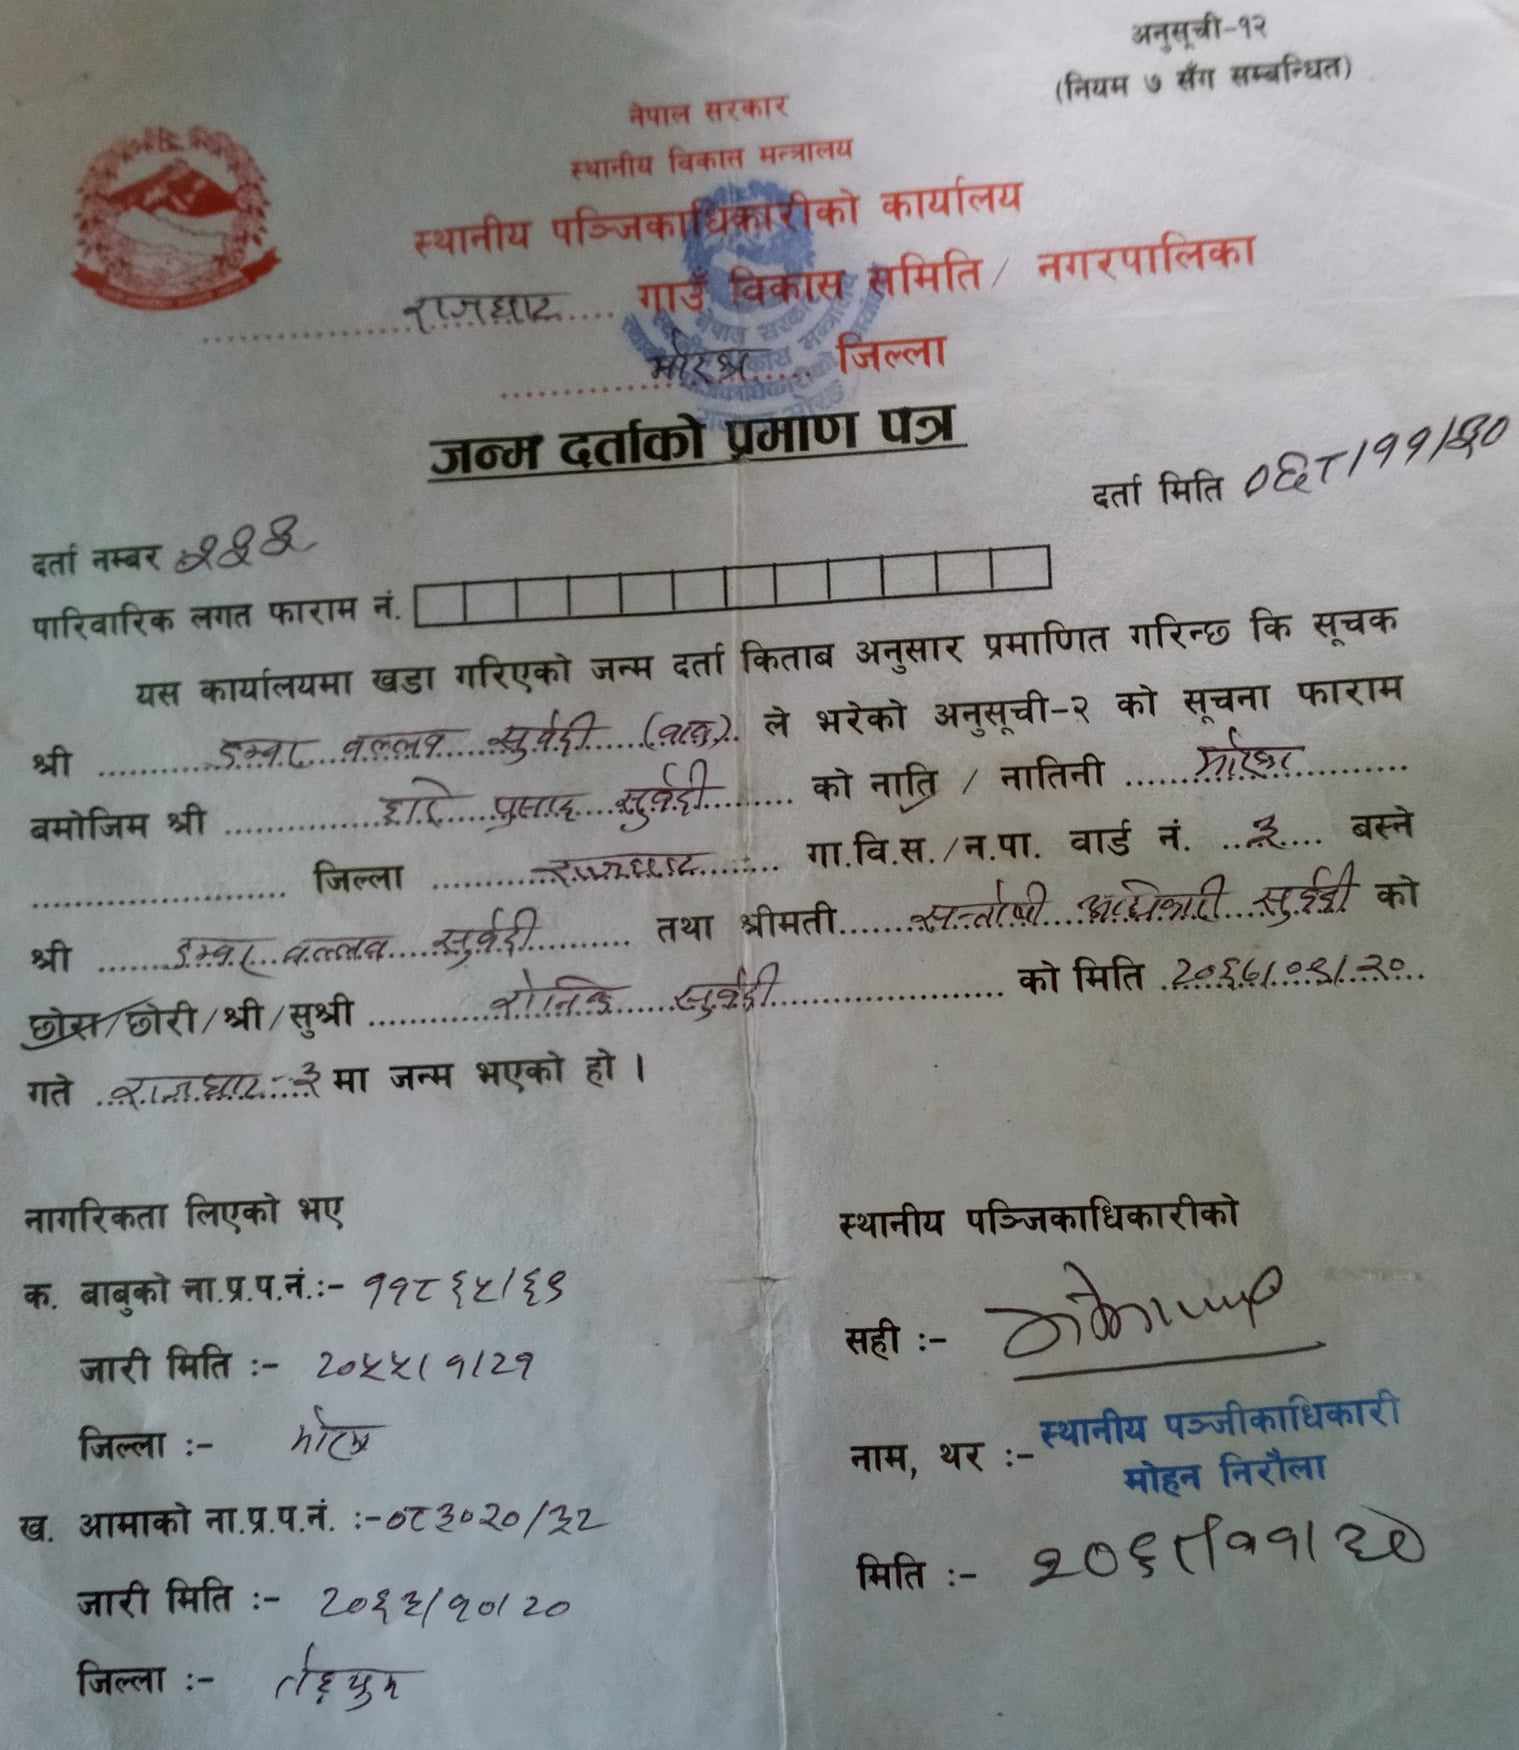 अनुसूची-१२
(नियम ७ सँग सम्बन्धित)
नेपाल सरकार
स्थानीय विकास मन्त्रालय
स्थानीय पञ्जिकाधिकारीको कार्यालय
राजघाट गाउँ विकास समिति/ नगरपालिका
मोरङ जिल्ला
जन्म दर्ताको प्रमाण पत्र
दर्ता मिति ०६८/११/३०
दर्ता नम्बर
पारिवारिक लगत फाराम नं.
यस कार्यालयमा खडा गरिएको जन्म दर्ता किताब अनुसार प्रमाणित गरिन्छ कि सूचक
श्री डम्बर वल्लव सुवेदी (बाबु) ले भरेको अनुसूची-२ को सूचना फाराम
बमोजिम श्री प्रसाद सुवेदी को नाति / नातिनी मोरङ
जिल्ला राजघाट गा.वि.स./न.पा. वार्ड नं. ३ बस्ने
श्री डम्बर वल्लव सुवेदी तथा श्रीमती सन्तोषी अधिकारी सुवेदी को
छोरा/छोरी/श्री/सुश्री सुवेदी को मिति
गते राजघाट-३ मा जन्म भएको हो ।
नागरिकता लिएको भए
स्थानीय पञ्जिकाधिकारीको
क. बाबुको ना.प्र.प.नं.:- ११८६५/६९
जारी मिति :- २०५५/१/२१
सही :-
जिल्ला :- मोरङ
नाम, थर :- स्थानीय पञ्जीकाधिकारी
मोहन निरौला
ख. आमाको ना.प्र.प.नं. :- ०८३०२०/३२
मिति :- २०६८/११/३०
जारी मिति :- २०६३/१०/२०
जिल्ला :-